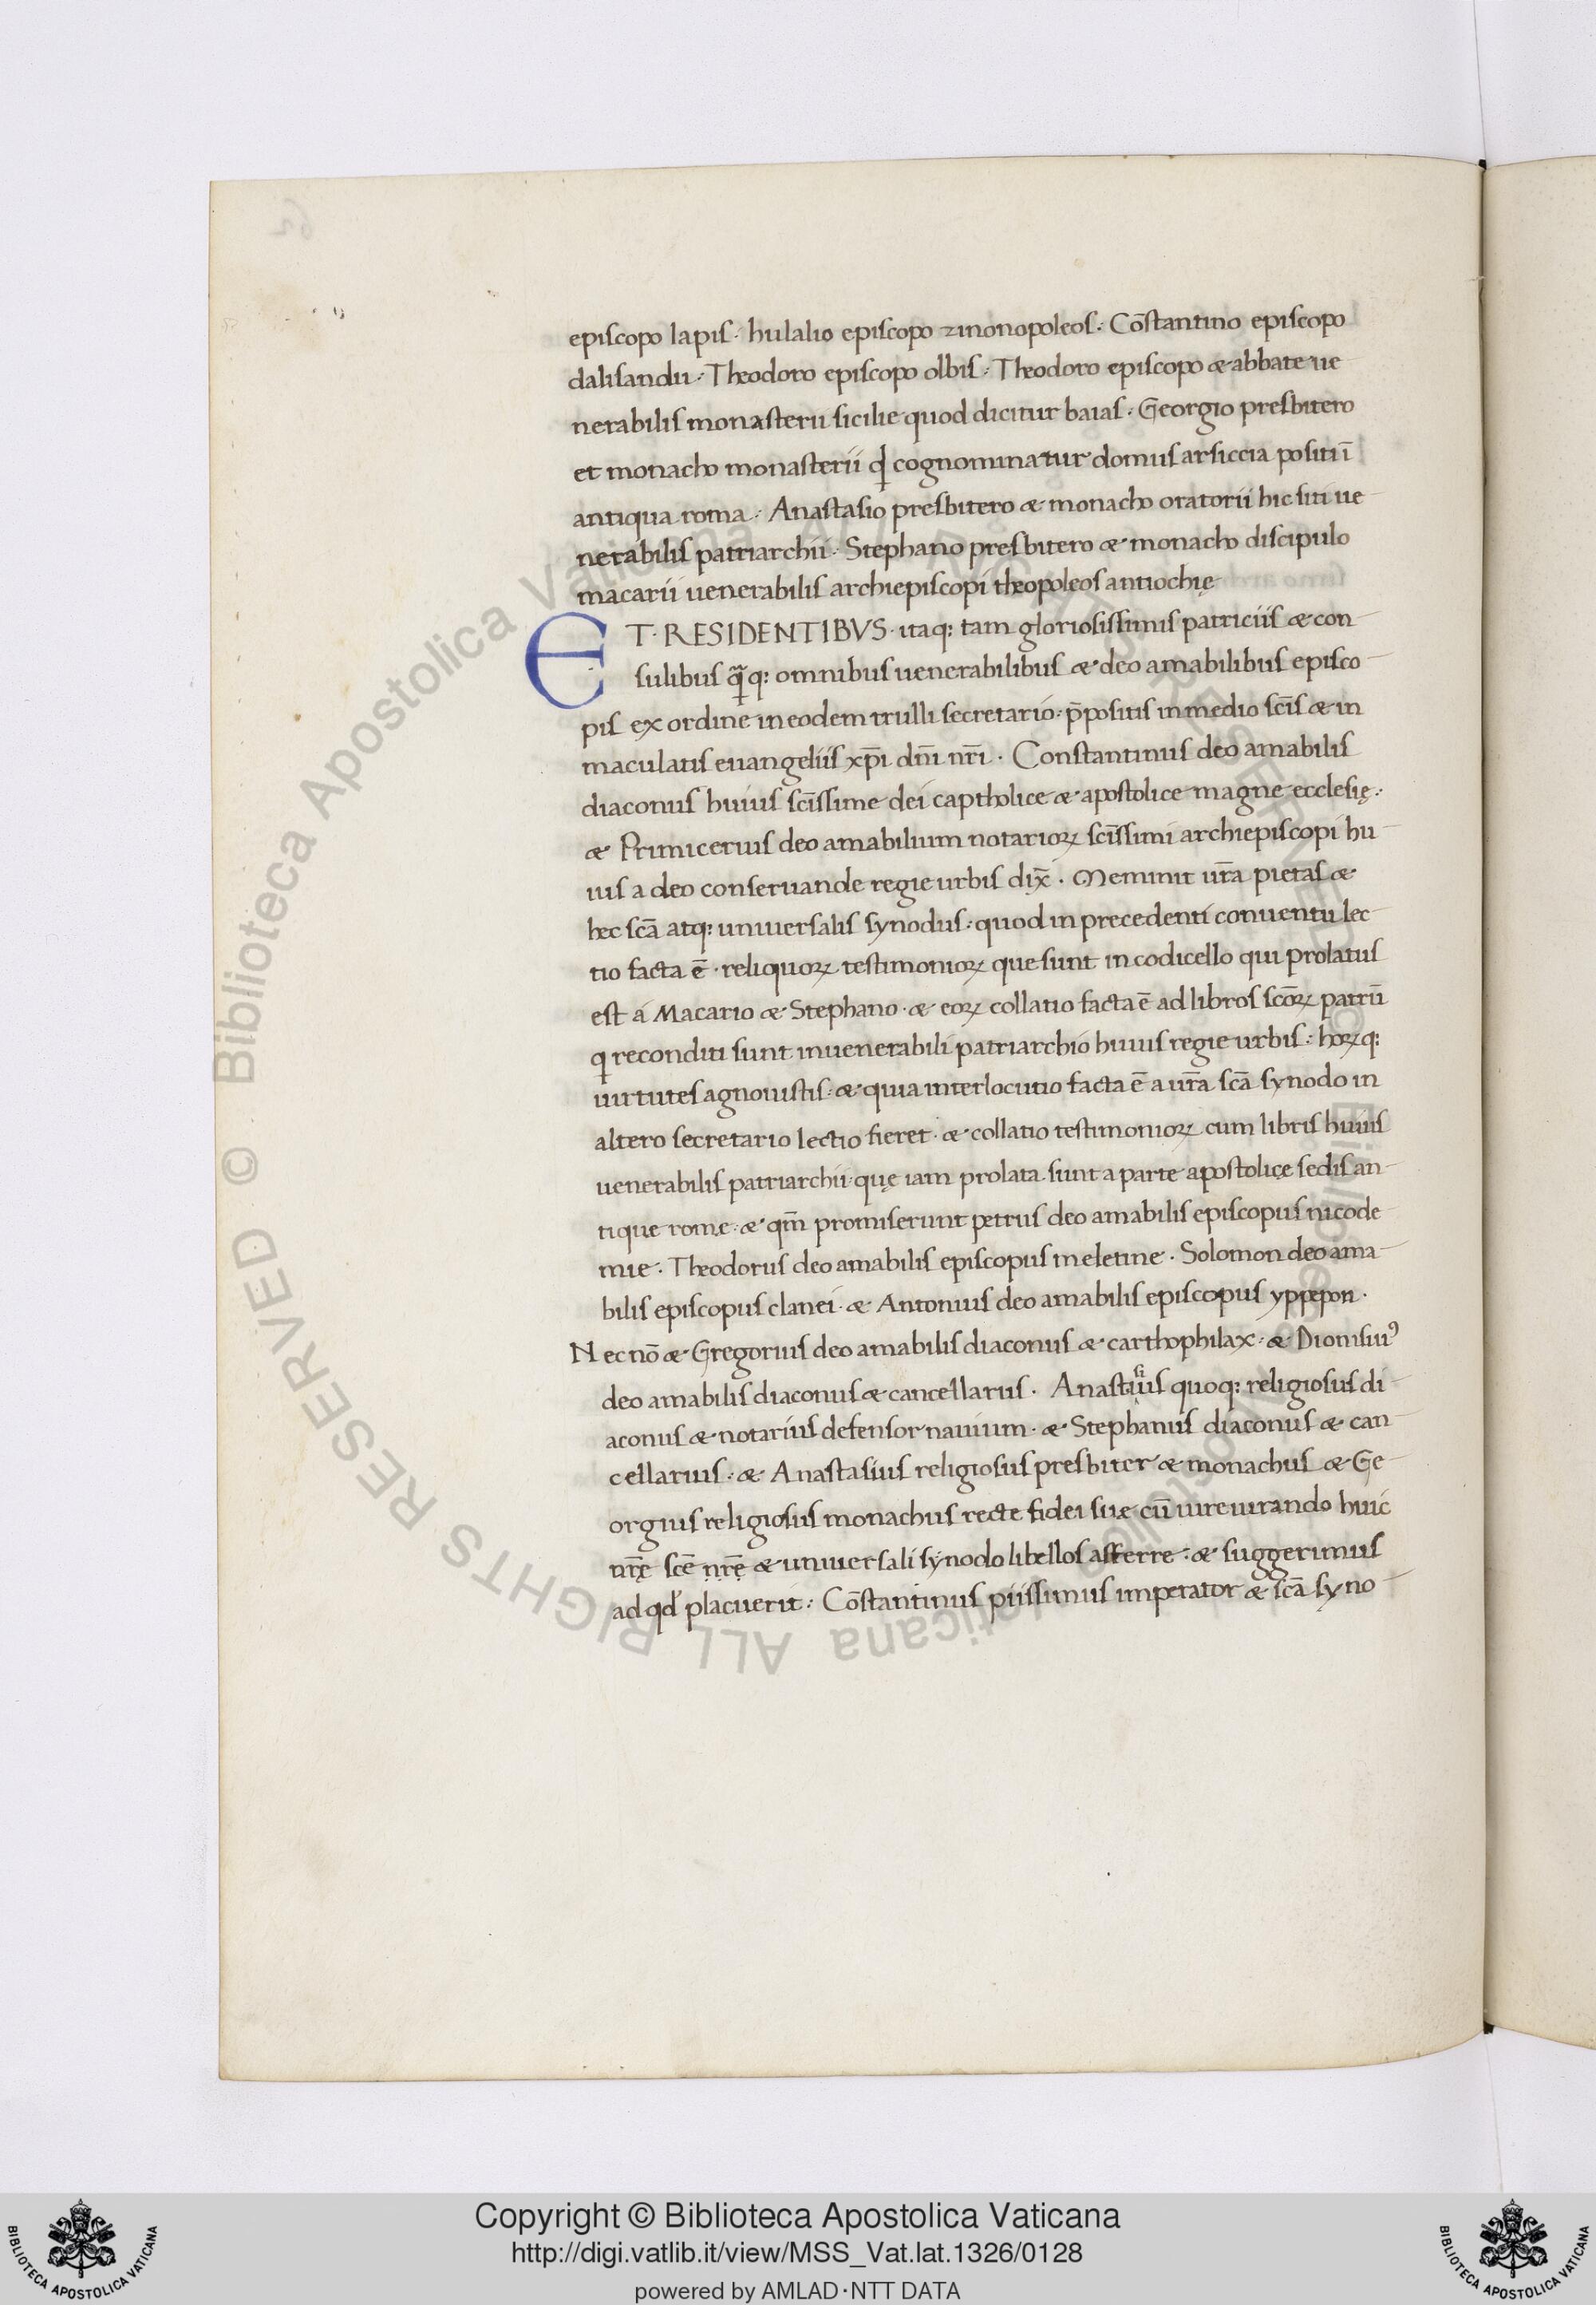 episcopo lapis · hulalio episcopo zinonopoleos : Cōstantino episcopo
dalisandu : Theodoro episcopo olbis : Theodoro episcopo & abbate ue
nerabilis monasterii sicilie quod dicitur baias : Georgio presbitero
et monacho monasterii qđ cognominatur domus arsiccia positi ī
antiqua roma : Anastasio presbitero & monacho oratorii hic siti ue
nerabilis patriarchii : Stephano presbitero & monacho discipulo
macarii uenerabilis archiepiscopi theopoleos antiochię
ET · RESIDENTIBVS · itaq: tam gloriosissimis patriciis & con
sulibus q̄q: omnibus uenerabilibus & deo amabilibus episco
pis ex ordine in eodem trulli secretario : p̄positis in medio sc̄is & in
maculatis euangeliis xp̄i dn̄i nr̄i · Constantinus deo amabilis
diaconus huius sc̄issime dei captholice & apostolice magne ecclesię :
& Primicerius deo amabilium notarioꝝ sc̄issimi archiepiscopi hu
ius a deo conseruande regie urbis dix̄ · Meminit ur̄a pietas &
hec sc̄a atq: uniuersalis synodus : quod in precedenti conuentu lec
tio facta ē · reliquoꝝ testimonioꝝ que sunt in codicello qui prolatus
est á Macario & Stephano · & eoꝝ collatio facta ē ad libros sc̄oꝝ patrū
q reconditi sunt in uenerabili patriarchio huius regie urbis : hoꝝq:
uirtutes agnouistis : & quia interlocutio facta ē a ur̄a sc̄a synodo in
altero secretario lectio fieret · & collatio testimonioꝝ cum libris huius
uenerabilis patriarchii · quę iam prolata sunt a parte apostolicę sedis an
tique rome : & qm̄ promiserunt petrus deo amabilis episcopus nicode
mie · Theodorus deo amabilis episcopus meletine · Solomon deo ama
bilis episcopus clanei · & Antonius deo amabilis episcopus yppepon ·
Nec nō & Gregorius deo amabilis diaconus & carthophilax : & Dionisiuꝰ
deo amabilis diaconus & cancellarus · Anastasius quoq: religiosus di
aconus & notarius defensor nauium · & Stephanus diaconus & can
cellarius : & Anastasius religiosus presbiter & monachus & Ge
orgius religiosus monachus recte fidei suæ cū iureiurando huic
nr̄ę sc̄e nr̄ẹ & uniuersali synodo libellos afferre : & suggerimus
ad qd' placuerit : Cōstantinus piissimus imperator & sc̄a syno
© Biblioteca Apostolica Vaticana ALL RIGHTS RESERVED
Copyright © Biblioteca Apostolica Vaticana
http://digi.vatlib.it/view/MSS_Vat.lat.1326/0128
powered by AMLAD·NTT DATA
BIBLIOTECA APOSTOLICA VATICANA
BIBLIOTECA APOSTOLICA VATICANA